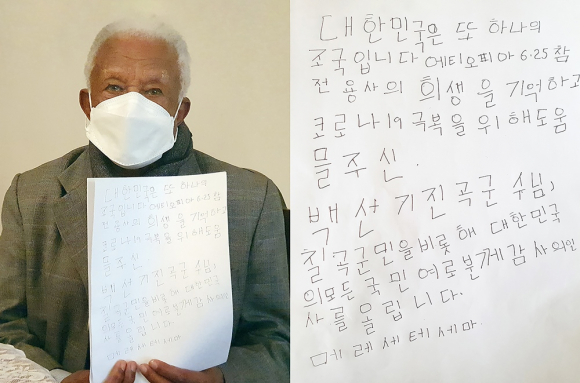 대한민국은 또 하나의
조국입니다 에티오피아 6.25 참
전 용사의 희생을 기억하고
코로나19 극복을 위해도움
을주신
백선기진곡군수님,
칠곡군민을비롯해 대한민국
의모든 국민 여러분께감사의인
사를 올립니다.
메레세테세마
대한민국은 또 하나의
조국입니다 에티오피아 6.25 참
전 용사의 희생을 기억하고
코로나19 극복을 위해도움
을주신.
백선기진곡군수님,
칠곡군민을비롯해 대한민국
의모든 국민 여러분께감사의인
사를 올립니다.
메레세테세마.